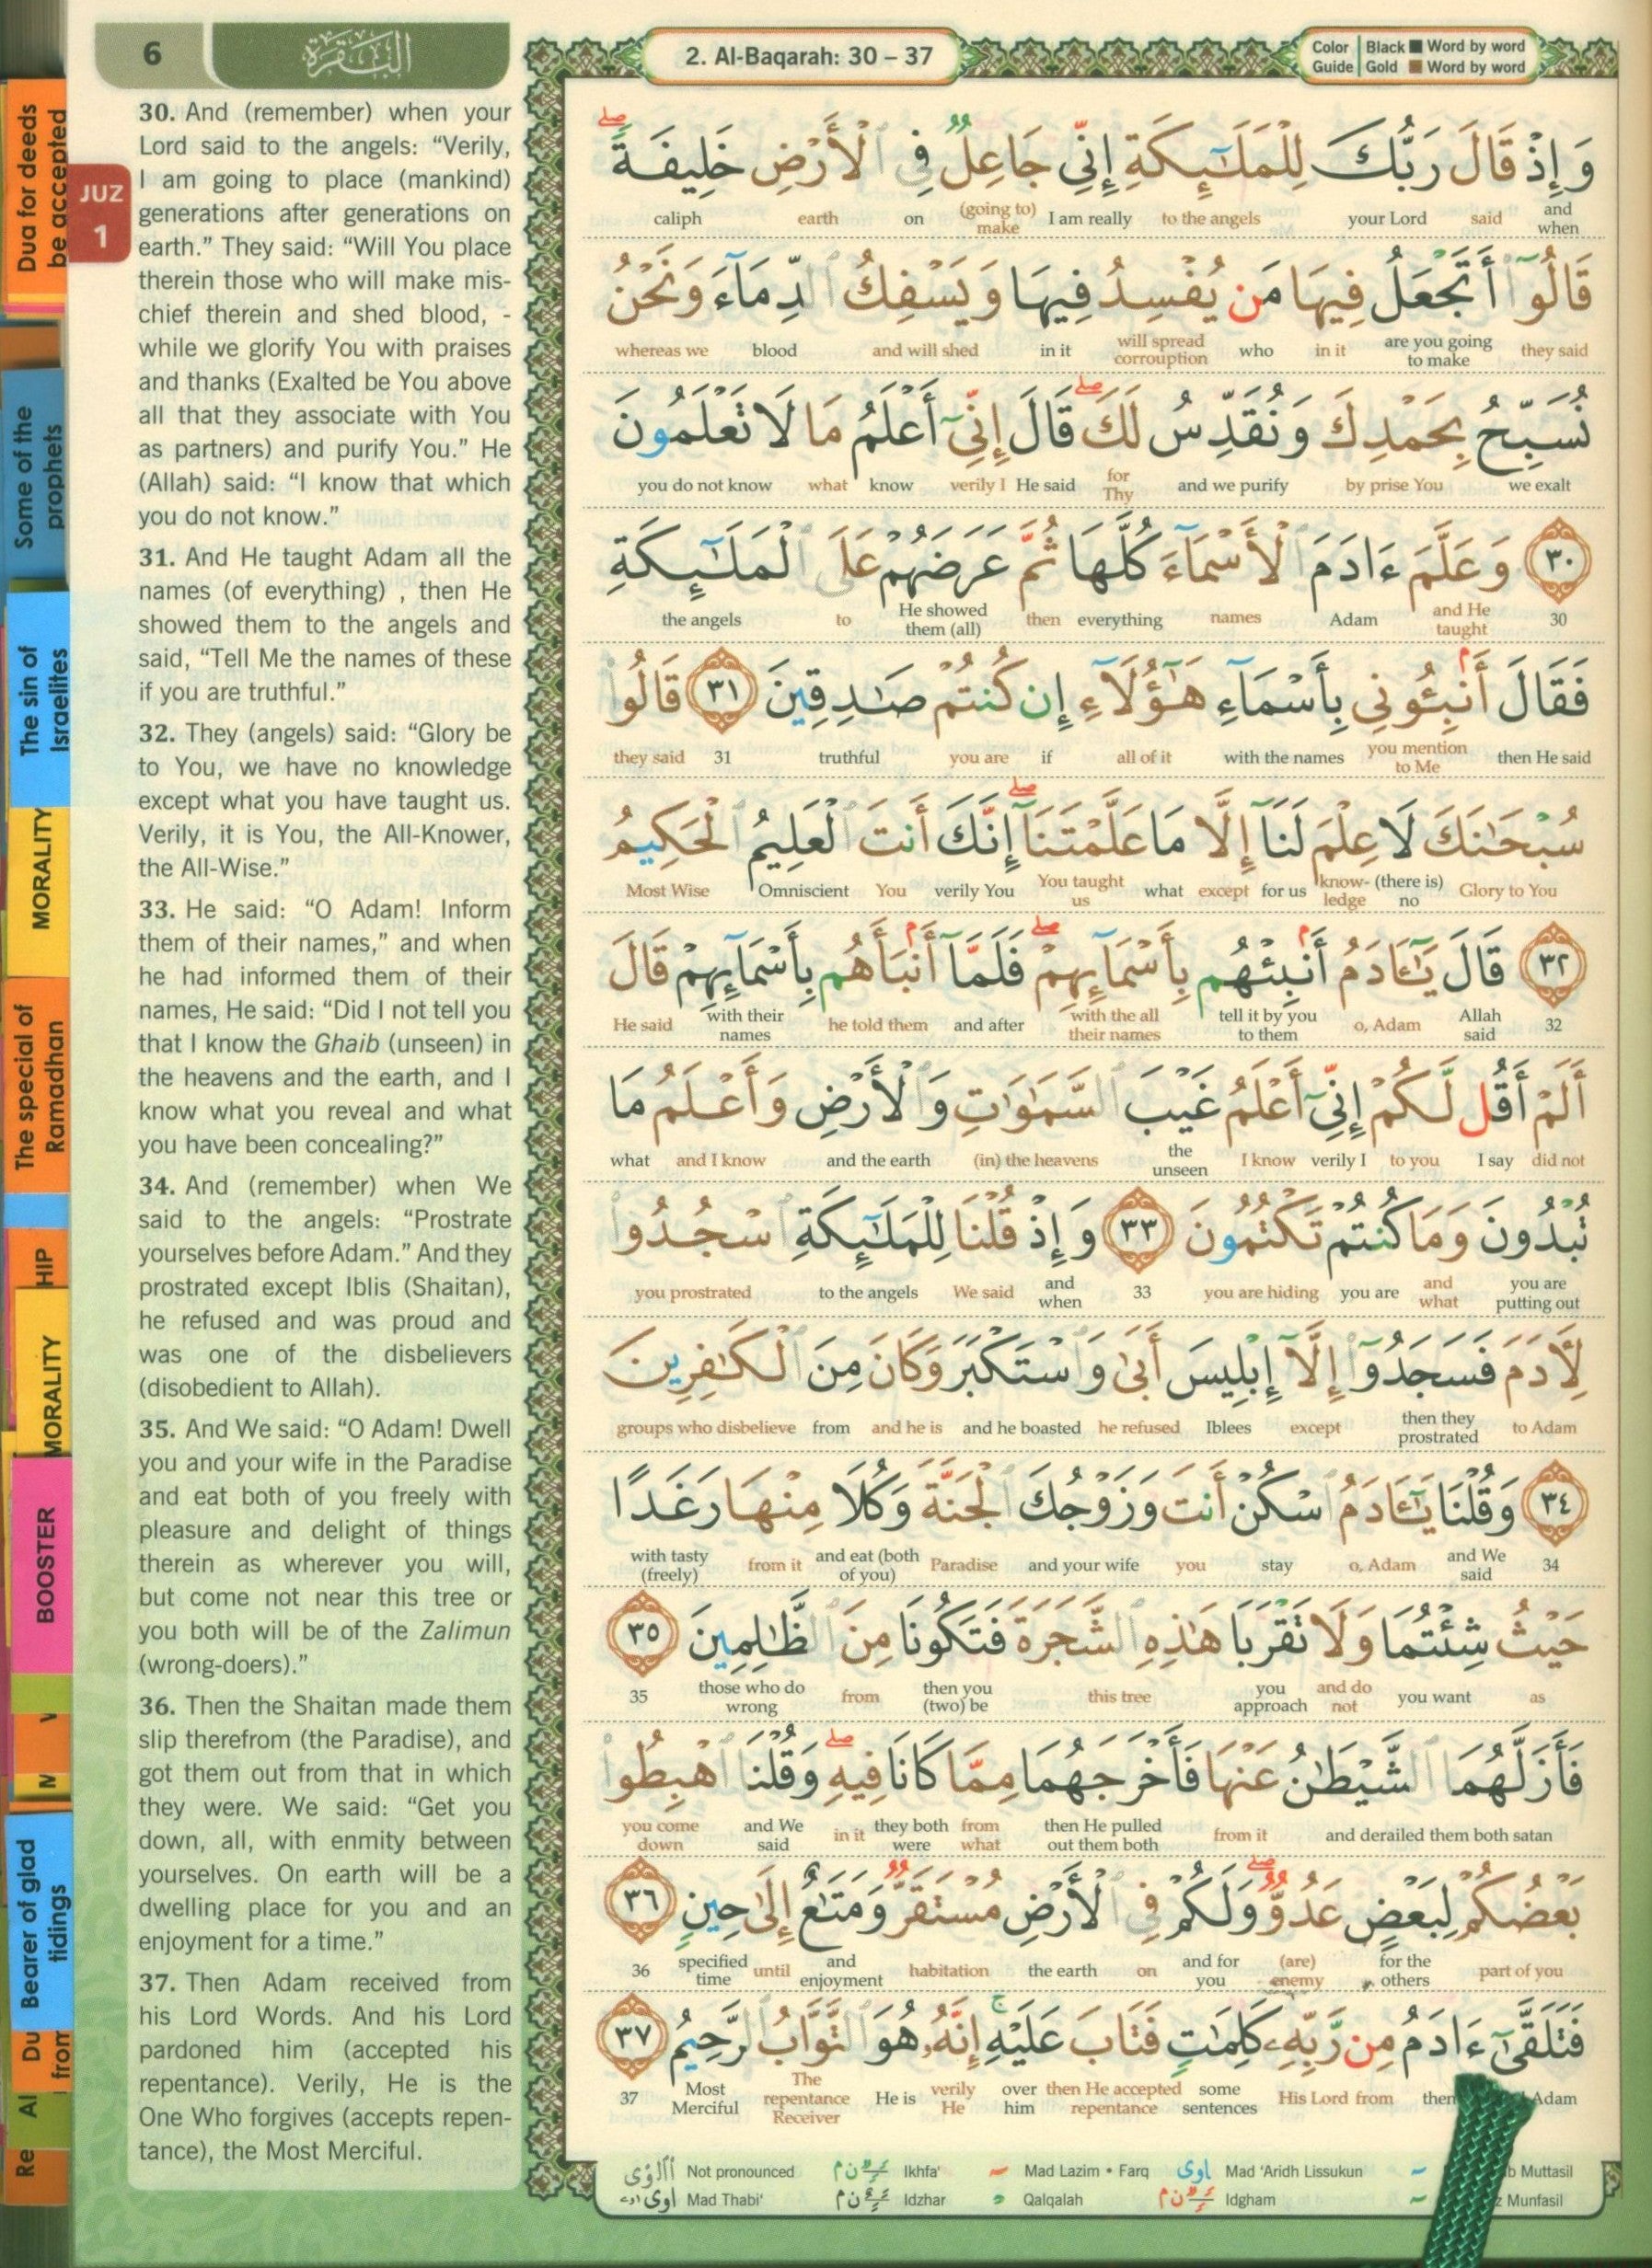 6
البقرة
2. Al-Baqarah: 30 – 37
Color Guide
Black ■ Word by word
Gold ■ Word by word
Dua for deeds be accepted
JUZ 1
Some of the prophets
The sin of Israelites
MORALITY
The special of Ramadhan
HIP
MORALITY
BOOSTER
Bearer of glad tidings
Du
from
Al
Re
30. And (remember) when your
Lord said to the angels: “Verily,
I am going to place (mankind)
generations after generations on
earth.” They said: “Will You place
therein those who will make mis-
chief therein and shed blood, -
while we glorify You with praises
and thanks (Exalted be You above
all that they associate with You
as partners) and purify You.” He
(Allah) said: “I know that which
you do not know.”
31. And He taught Adam all the
names (of everything) , then He
showed them to the angels and
said, “Tell Me the names of these
if you are truthful.”
32. They (angels) said: “Glory be
to You, we have no knowledge
except what you have taught us.
Verily, it is You, the All-Knower,
the All-Wise.”
33. He said: “O Adam! Inform
them of their names,” and when
he had informed them of their
names, He said: “Did I not tell you
that I know the Ghaib (unseen) in
the heavens and the earth, and I
know what you reveal and what
you have been concealing?”
34. And (remember) when We
said to the angels: “Prostrate
yourselves before Adam.” And they
prostrated except Iblis (Shaitan),
he refused and was proud and
was one of the disbelievers
(disobedient to Allah).
35. And We said: “O Adam! Dwell
you and your wife in the Paradise
and eat both of you freely with
pleasure and delight of things
therein as wherever you will,
but come not near this tree or
you both will be of the Zalimun
(wrong-doers).”
36. Then the Shaitan made them
slip therefrom (the Paradise), and
got them out from that in which
they were. We said: “Get you
down, all, with enmity between
yourselves. On earth will be a
dwelling place for you and an
enjoyment for a time.”
37. Then Adam received from
his Lord Words. And his Lord
pardoned him (accepted his
repentance). Verily, He is the
One Who forgives (accepts repen-
tance), the Most Merciful.
وَإِذْ قَالَ رَبُّكَ لِلْمَلَٰٓئِكَةِ إِنِّي جَاعِلٌ فِي ٱلْأَرْضِ خَلِيفَةً ۖ
caliph earth on (going to) make I am really to the angels your Lord said and when
قَالُوٓا۟ أَتَجْعَلُ فِيهَا مَن يُفْسِدُ فِيهَا وَيَسْفِكُ ٱلدِّمَآءَ وَنَحْنُ
whereas we blood and will shed in it will spread corrouption who in it are you going to make they said
نُسَبِّحُ بِحَمْدِكَ وَنُقَدِّسُ لَكَ ۖ قَالَ إِنِّيٓ أَعْلَمُ مَا لَا تَعْلَمُونَ
you do not know what know verily I He said for Thy and we purify by prise You we exalt
٣٠ وَعَلَّمَ ءَادَمَ ٱلْأَسْمَآءَ كُلَّهَا ثُمَّ عَرَضَهُمْ عَلَى ٱلْمَلَٰٓئِكَةِ
the angels to He showed them (all) then everything names Adam and He taught 30
فَقَالَ أَنۢبِـُٔونِي بِأَسْمَآءِ هَٰٓؤُلَآءِ إِن كُنتُمْ صَٰدِقِينَ ٣١ قَالُوا۟
they said 31 truthful you are if all of it with the names you mention to Me then He said
سُبْحَٰنَكَ لَا عِلْمَ لَنَآ إِلَّا مَا عَلَّمْتَنَآ ۖ إِنَّكَ أَنتَ ٱلْعَلِيمُ ٱلْحَكِيمُ
Most Wise Omniscient You verily You You taught us what except for us know-ledge (there is) no Glory to You
٣٢ قَالَ يَٰٓـَٔادَمُ أَنۢبِئْهُم بِأَسْمَآئِهِمْ ۖ فَلَمَّآ أَنۢبَأَهُم بِأَسْمَآئِهِمْ قَالَ
He said with their names he told them and after with the all their names tell it by you to them o, Adam Allah said 32
أَلَمْ أَقُل لَّكُمْ إِنِّيٓ أَعْلَمُ غَيْبَ ٱلسَّمَٰوَٰتِ وَٱلْأَرْضِ وَأَعْلَمُ مَا
what and I know and the earth (in) the heavens the unseen I know verily I to you I say did not
تُبْدُونَ وَمَا كُنتُمْ تَكْتُمُونَ ٣٣ وَإِذْ قُلْنَا لِلْمَلَٰٓئِكَةِ ٱسْجُدُوا۟
you prostrated to the angels We said and when 33 you are hiding you are and what you are putting out
لِـَٔادَمَ فَسَجَدُوٓا۟ إِلَّآ إِبْلِيسَ أَبَىٰ وَٱسْتَكْبَرَ وَكَانَ مِنَ ٱلْكَٰفِرِينَ
groups who disbelieve from and he is and he boasted he refused Iblees except then they prostrated to Adam
٣٤ وَقُلْنَا يَٰٓـَٔادَمُ ٱسْكُنْ أَنتَ وَزَوْجُكَ ٱلْجَنَّةَ وَكُلَا مِنْهَا رَغَدًا
with tasty (freely) from it and eat (both of you) Paradise and your wife you stay o, Adam and We said 34
حَيْثُ شِئْتُمَا وَلَا تَقْرَبَا هَٰذِهِ ٱلشَّجَرَةَ فَتَكُونَا مِنَ ٱلظَّٰلِمِينَ ٣٥
35 those who do wrong from then you (two) be this tree you approach and do not you want as
فَأَزَلَّهُمَا ٱلشَّيْطَٰنُ عَنْهَا فَأَخْرَجَهُمَا مِمَّا كَانَا فِيهِ ۖ وَقُلْنَا ٱهْبِطُوا۟
you come down and We said in it they both were from what then He pulled out them both from it and derailed them both satan
بَعْضُكُمْ لِبَعْضٍ عَدُوٌّ ۖ وَلَكُمْ فِي ٱلْأَرْضِ مُسْتَقَرٌّ وَمَتَٰعٌ إِلَىٰ حِينٍ ٣٦
36 specified time until and enjoyment habitation the earth on and for you (are) enemy for the others part of you
فَتَلَقَّىٰٓ ءَادَمُ مِن رَّبِّهِۦ كَلِمَٰتٍ فَتَابَ عَلَيْهِ ۚ إِنَّهُۥ هُوَ ٱلتَّوَّابُ ٱلرَّحِيمُ ٣٧
37 Most Merciful The repentance Receiver He is verily He over him then He accepted repentance some sentences His Lord from then Adam
Not pronounced Ikhfa' Mad Lazim • Farq Mad 'Aridh Lissukun Muttasil
Mad Thabi' Idzhar Qalqalah Idgham Munfasil